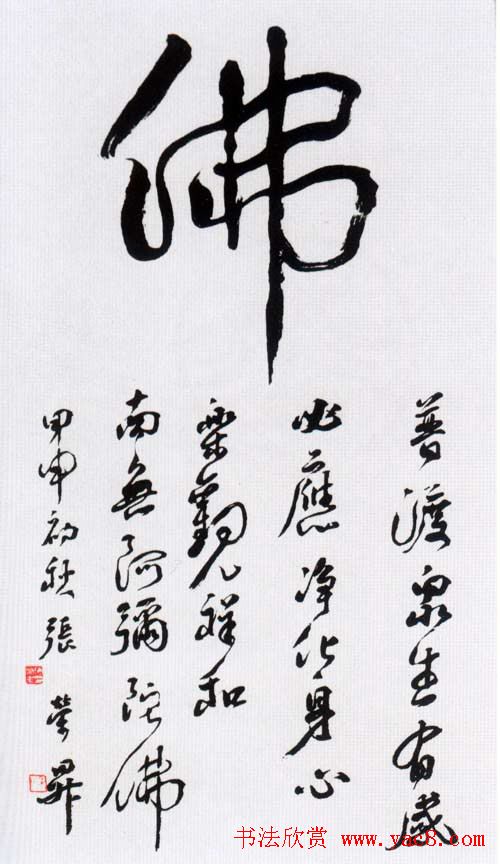 佛
普渡眾生有感
必應净化身心
樂觀祥和
南無阿彌陀佛
甲申初秋張榮昇
书法欣赏 www.yac8.com